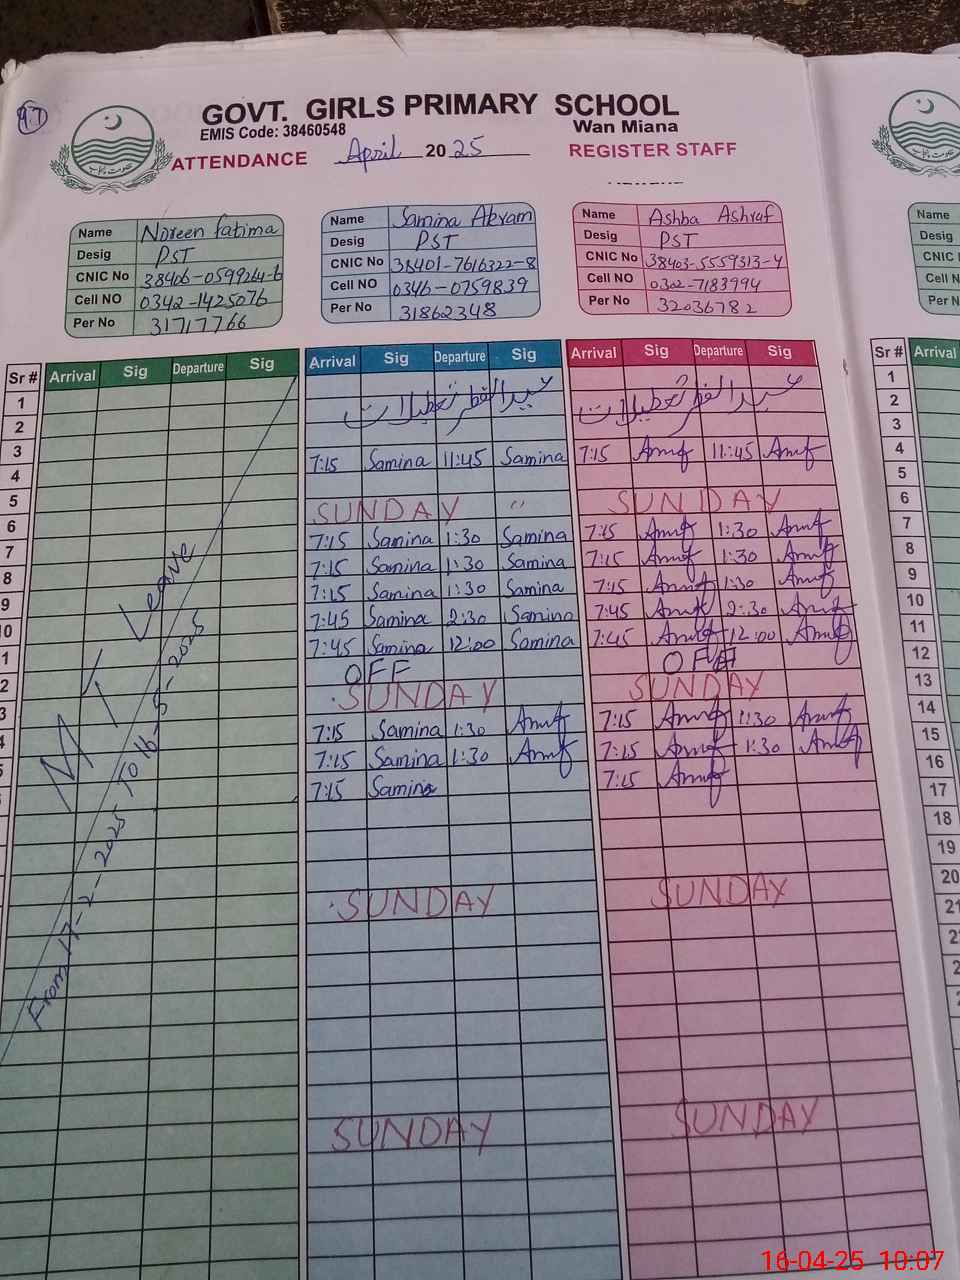 97
GOVT. GIRLS PRIMARY SCHOOL
EMIS Code: 38460548 Wan Miana
ATTENDANCE April 2025 REGISTER STAFF
Name Noreen fatima
Desig PST
CNIC No 38406-0599264-6
Cell NO 0342-1425076
Per No 31717766
Name Samina Akram
Desig PST
CNIC No 38401-7616322-8
Cell NO 0346-0759839
Per No 31862348
Name Ashba Ashraf
Desig PST
CNIC No 38403-5559313-4
Cell NO 0302-7183994
Per No 32036782
Name
Desig
CNIC N
Cell N
Per N
Sr # Arrival Sig Departure Sig Arrival Sig Departure Sig Arrival Sig Departure Sig Sr # Arrival
1 1
2 عید الفطر تعطیلات عید الفطر تعطیلات 2
3 3
4 7:15 Samina 11:45 Samina 7:15 11:45 4
5 5
6 SUNDAY " SUNDAY 6
7 7:15 Samina 1:30 Samina 7:15 1:30 7
8 7:15 Samina 1:30 Samina 7:15 1:30 8
9 7:15 Samina 1:30 Samina 7:15 1:30 9
10 7:45 Samina 2:30 Samina 7:45 2:30 10
11 7:45 Samina 12:00 Samina 7:45 12:00 11
12 OFF OFF 12
13 SUNDAY SUNDAY 13
14 7:15 Samina 1:30 7:15 1:30 14
15 7:15 Samina 1:30 7:15 1:30 15
16 7:15 Samina 7:15 16
17
18
19
20 SUNDAY SUNDAY
21
SUNDAY SUNDAY
M T Leave
From 17-2-2025 To 16-5-2025
16-04-25 10:07